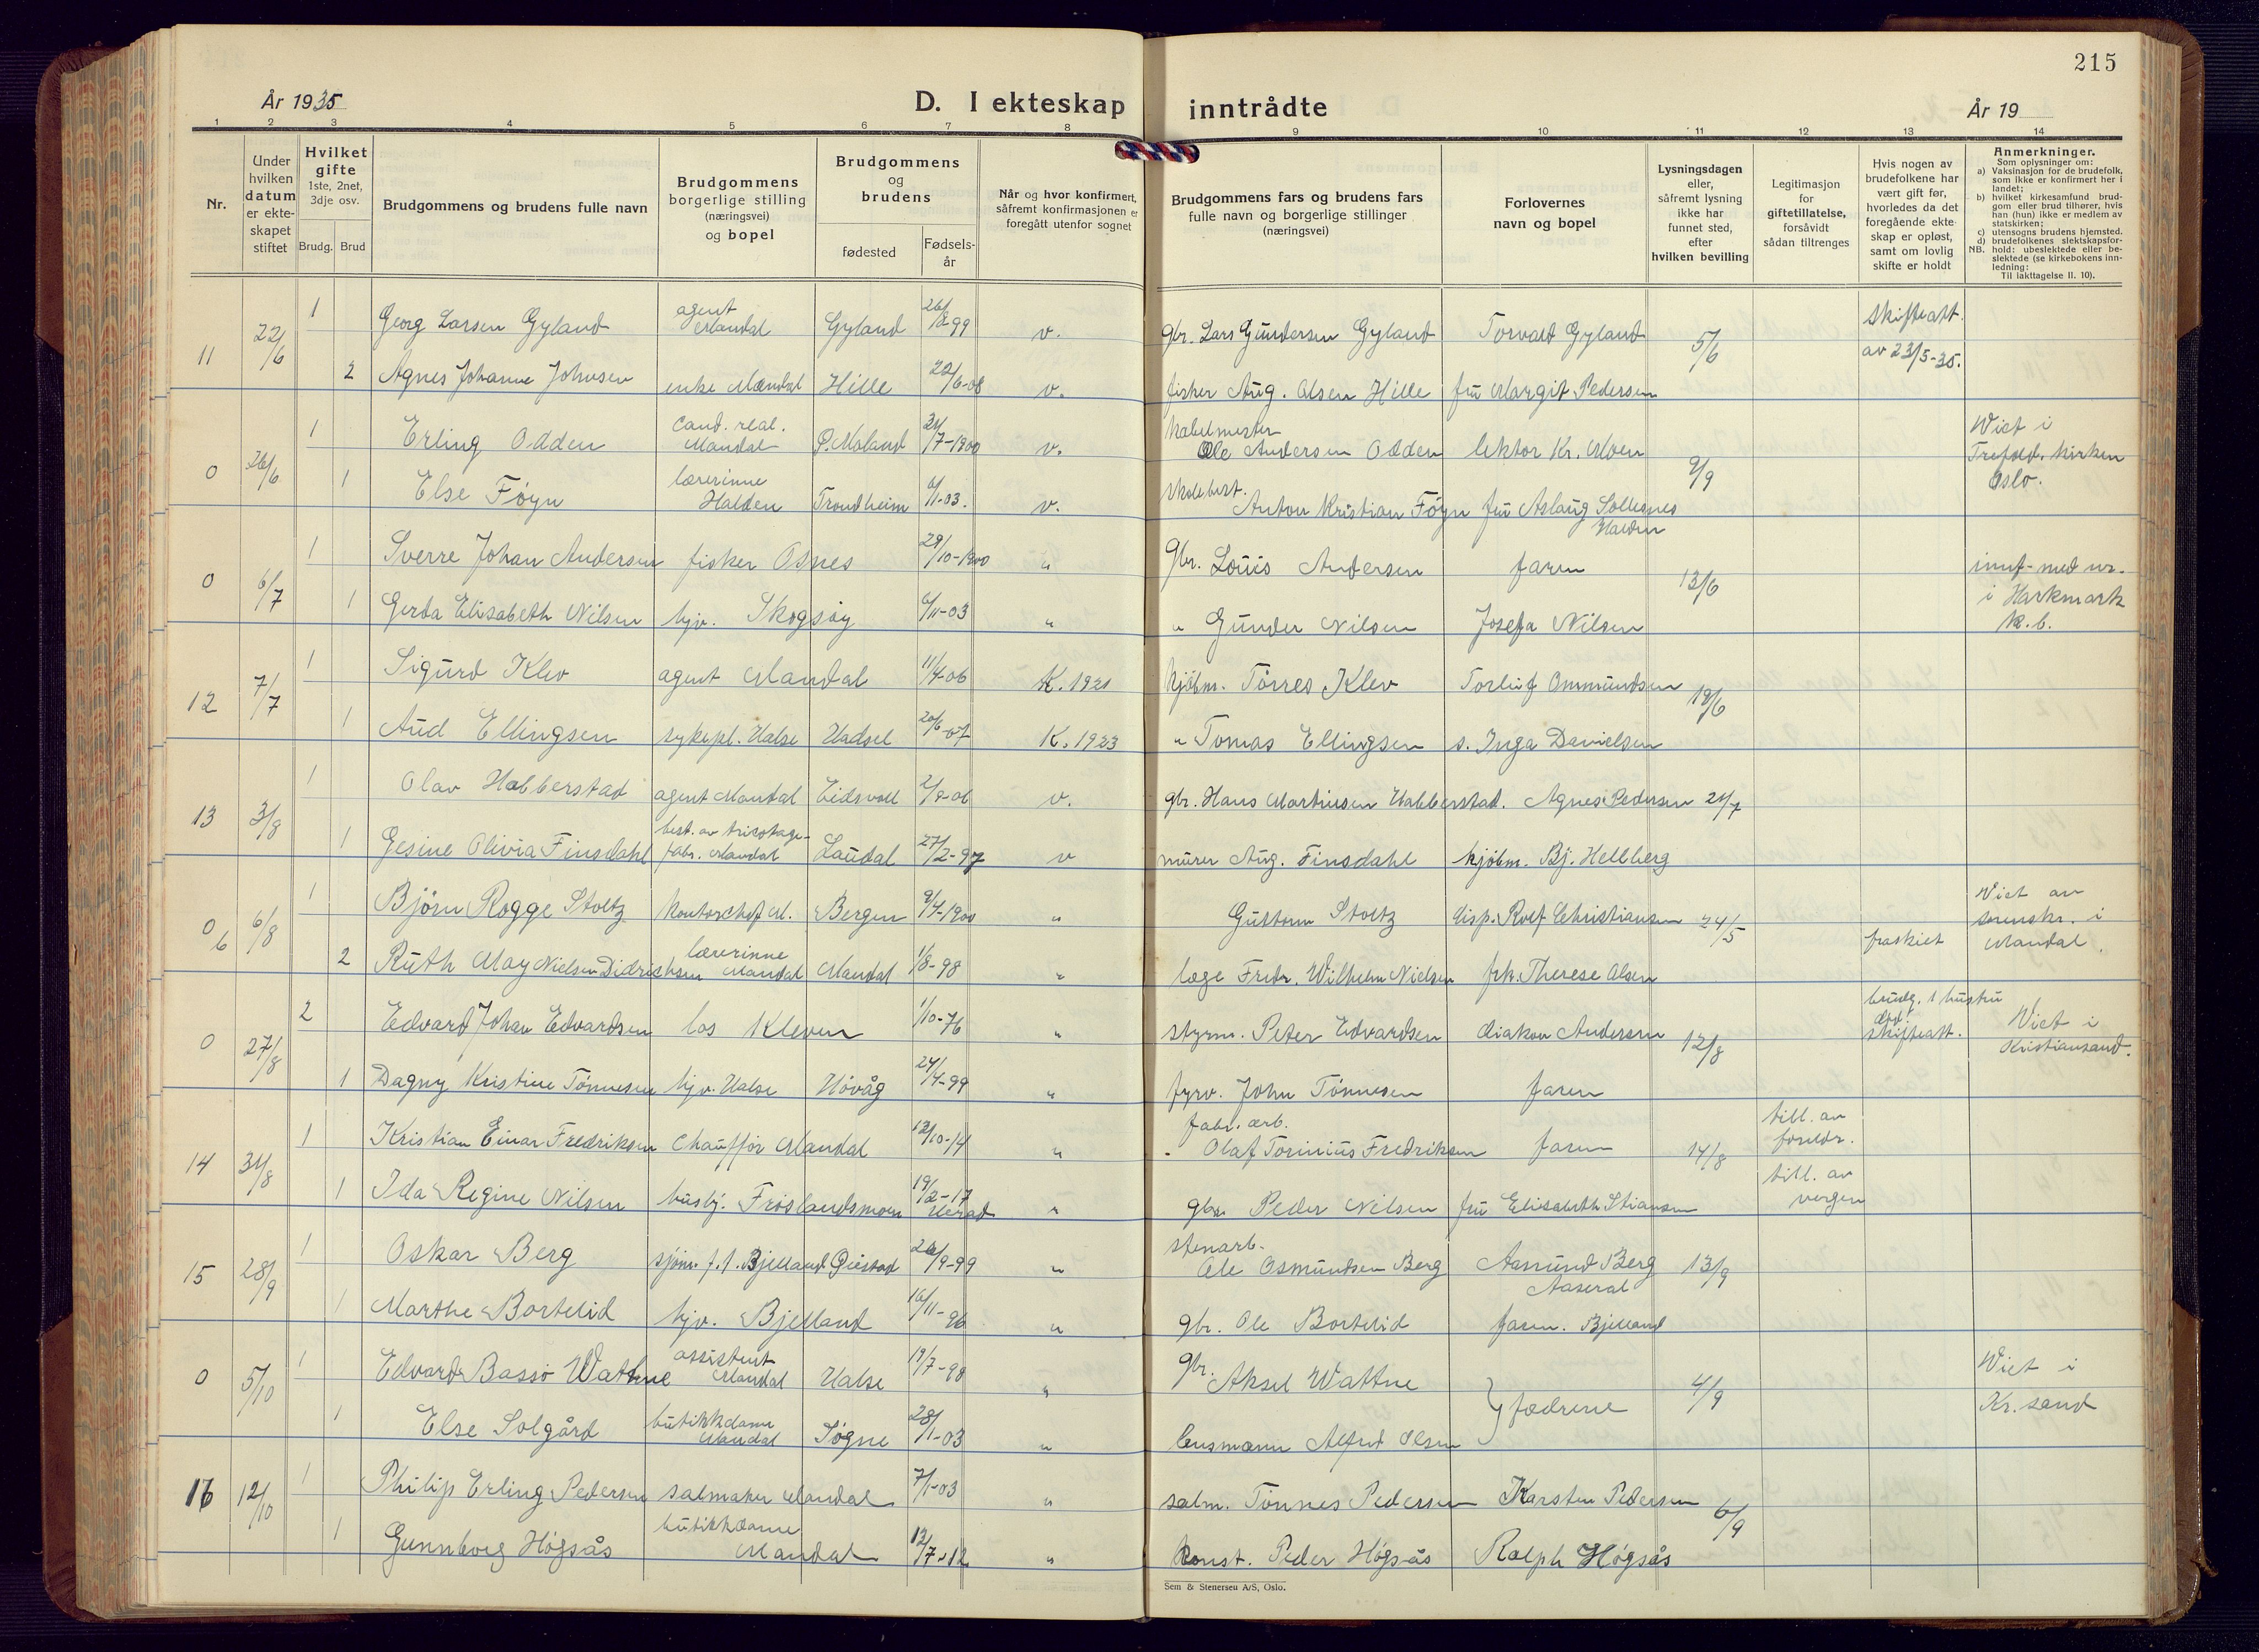 215
År 1935
D. I ekteskap
inntrådte
År 19
1 2 3 4 5 6 7 8 9 10 11 12 13 14
Nr.
Under
hvilken
datum
er ekte-
skapet
stiftet
Hvilket
gifte
1ste, 2net,
3dje osv.
Brudg. Brud
Brudgommens og brudens fulle navn
Brudgommens
borgerlige stilling
(næringsvei)
og bopel
Brudgommens
og
brudens
fødested
Fødsels-
år
Når og hvor konfirmert,
såfremt konfirmasjonen er
foregått utenfor sognet
Brudgommens fars og brudens fars
fulle navn og borgerlige stillinger
(næringsvei)
Forlovernes
navn og bopel
Lysningsdagen
eller,
såfremt lysning
ikke har
funnet sted,
efter
hvilken bevilling
Legitimasjon
for
giftetillatelse,
forsåvidt
sådan tiltrenges
Hvis nogen av
brudefolkene har
vært gift før,
hvorledes da det
foregående ekte-
skap er opløst,
samt om lovlig
skifte er holdt
Anmerkninger.
Som oplysninger om:
a) Vaksinasjon for de brudefolk,
som ikke er konfirmert her i
landet;
b) hvilket kirkesamfund brud-
gom eller brud tilhører, hvis
han (hun) ikke er medlem av
statskirken;
c) utensogns brudens hjemsted.
d) brudefolkenes slektskapsfor-
NB. hold: ubeslektede eller be-
slektede (se kirkebokens inn-
ledning:
Til iakttagelse II. 10).
11 22/6 1 Georg Larsen Gyland agent Mandal Gyland 26/8 99 v. gbr. Lars Gundersen Gyland Torvald Gyland 5/6 Skifteatt. av 23/5-35.
2 Agnes Johanne Johnsen enke Mandal Hille 22/6-08 v. fisker Aug. Olsen Hille fru Margit Pedersen
0 26/6 1 Erling Odden cand. real. Mandal Ø. Moland 24/7-1900 v. Kabelmester Ole Andersen Odden lektor Kr. Moen 9/9 Viet i Trefold. kirken Oslo.
1 Else Føyn lærerinne Halden Trondheim 6/11-03. v. skolebest. Anton Kristian Føyn fru Aslaug Sollesnes Halden
0 6/7 1 Sverre Johan Andersen fisker Osnes 29/10-1900 " Gbr. Louis Andersen faren 13/6 innf. med nr. i Harkmark k.b.
1 Gerda Elisabeth Nilsen hjv. Skogsøy 6/11-03 " " Gunder Nilsen Josefa Nilsen
12 7/7 1 Sigurd Klev agent Mandal 11/4-06 K. 1921 kjøbm. Tørres Klev Torleif Ommundsen 19/6
1 Aud Ellingsen sykepl. Halse Hadsel 20/6-07 K. 1923 " Tomas Ellingsen s. Inga Danielsen
13 3/8 1 Olav Habberstad agent Mandal Eidsvoll 2/8-06 v. gbr. Hans Martinsen Habberstad. Agnes Pedersen 24/7
1 Gesine Olivia Finsdahl best. av tricotage- fabr. Mandal Laudal 27/2-97 v murer Aug. Finsdahl kjøbm. Bj. Hellberg
0 6 6/8 1 Bjørn Rogge Stoltz kontorchef M. Bergen 9/4-1900 " Guttorm Stoltz disp. Rolf Christiansen 24/5 fraskiet Viet av sorenskr. i Mandal.
2 Ruth May Nielsen Didrichsen lærerinne Mandal Mandal 1/8-98 " læge Fredr. Wilhelm Nielsen frk. Therese Olsen
0 27/8 2 Edvard Johan Edvardsen los Kleven 1/10-76 " styrm. Peter Edvardsen diakon Andersen 12/8 brudg. 1 hustru død skifteatt. Viet i Kristiansand.
1 Dagny Kristine Tønnesen hjv. Halse Høvåg 24/4-99 " fyrv. John Tønnesen faren
14 31/8 1 Kristian Einar Fredriksen Chauffør Mandal 12/10-14 " fabr. arb. Olaf Torinius Fredriksen faren 14/8 till. av foreldr.
1 Ida Regine Nilsen husbj. Frøslandsmoen 19/2-17 Herad " gbr. Peder Nilsen fru Elisabeth Stiansen till. av vergen
15 28/9 1 Oskar Berg sjøm. f. t. Bjelland 26/9-99 " stenarb. Ole Osmundsen Berg Aamund Berg Aaseral 13/9
1 Marthe Bortelid hjv. Bjelland 16/11-96 " gbr. Ole Bortelid faren. Bjelland
0 5/10 1 Edvard Bassø Wattne assistent Mandal Halse 19/7-98 " gbr. Aksel Wattne } fedrene 4/9 Viet i Kr.sand
1 Else Solgård butikkdame Mandal Søgne 28/1-03 " lensmann Alfred Olsen
16 12/10 1 Philip Erling Pedersen salmaker Mandal 7/1-03 " salm. Tønnes Pedersen Karsten Pedersen 6/9
1 Gunnborg Høgsås butikkdame Mandal 12/7-12 " konst. Peder Høgsås Ralph Høgsås
Sem & Stenersen A/S, Oslo.